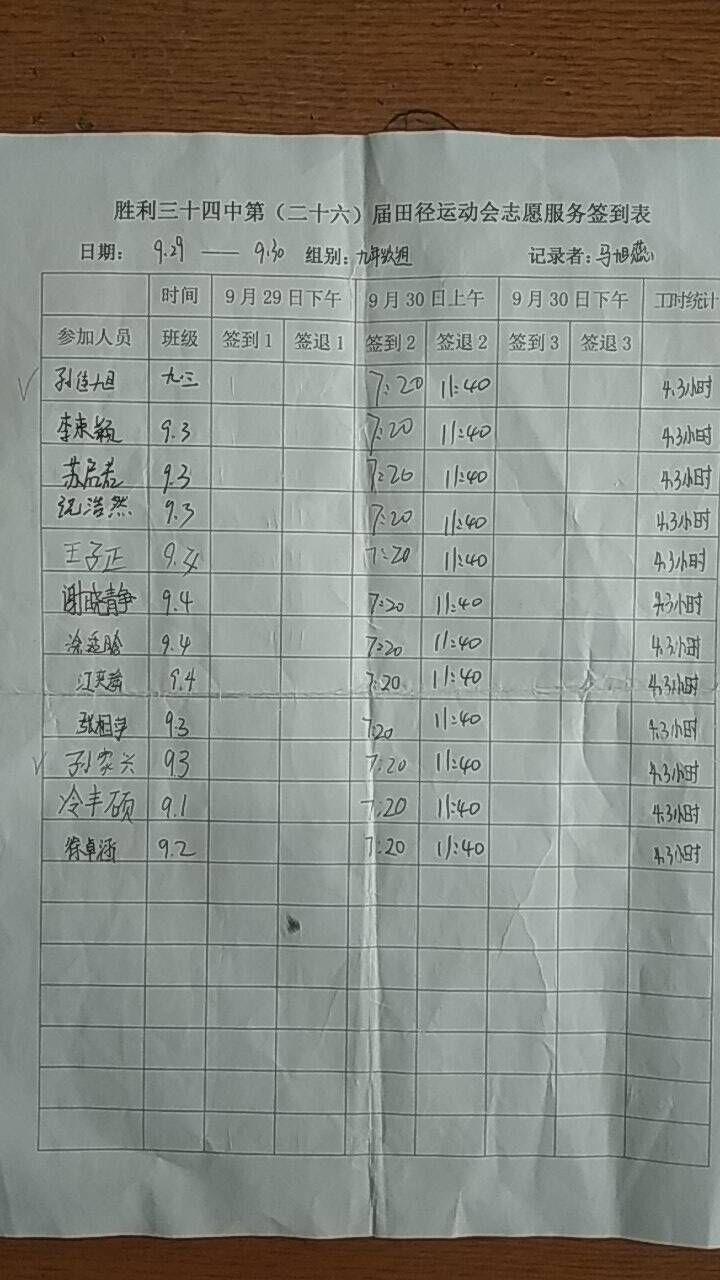 胜利三十四中第（二十六）届田径运动会志愿服务签到表
日期： 9.29 —— 9.30 组别：九年级组 记录者：马旭燕
时间 9月29日下午 9月30日上午 9月30日下午 工时统计
参加人员 班级 签到1 签退1 签到2 签退2 签到3 签退3
孙佳旭 九.三 7:20 11:40 4.3小时
李束颖 9.3 7:20 11:40 4.3小时
苏启若 9.3 7:20 11:40 4.3小时
浩然 9.3 7:20 11:40 4.3小时
王子正 7:20 11:40 4.3小时
谢晓静 9.4 7:20 11:40 4.3小时
9.4 7:20 11:40 4.3小时
江 9.4 7:20 11:40 4.3小时
张相宇 9.3 7:20 11:40 4.3小时
孙家兴 9.3 7:20 11:40 4.3小时
冷丰硕 9.1 7:20 11:40 4.3小时
徐卓涵 9.2 7:20 11:40 4.3小时